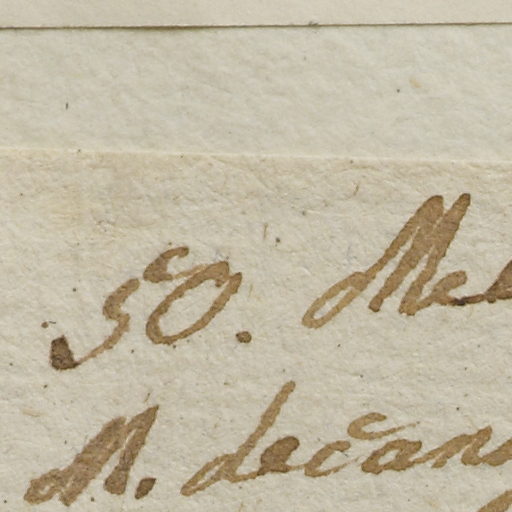 50. Mel
M. decan